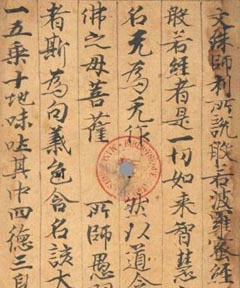 文殊師利所說般若波羅蜜經
般若經者是一切如來智慧
名无為无作 狀以道合
佛之母菩薩 所師愚
者斯為句義 含名該大
一五乘十地 其中四德三身